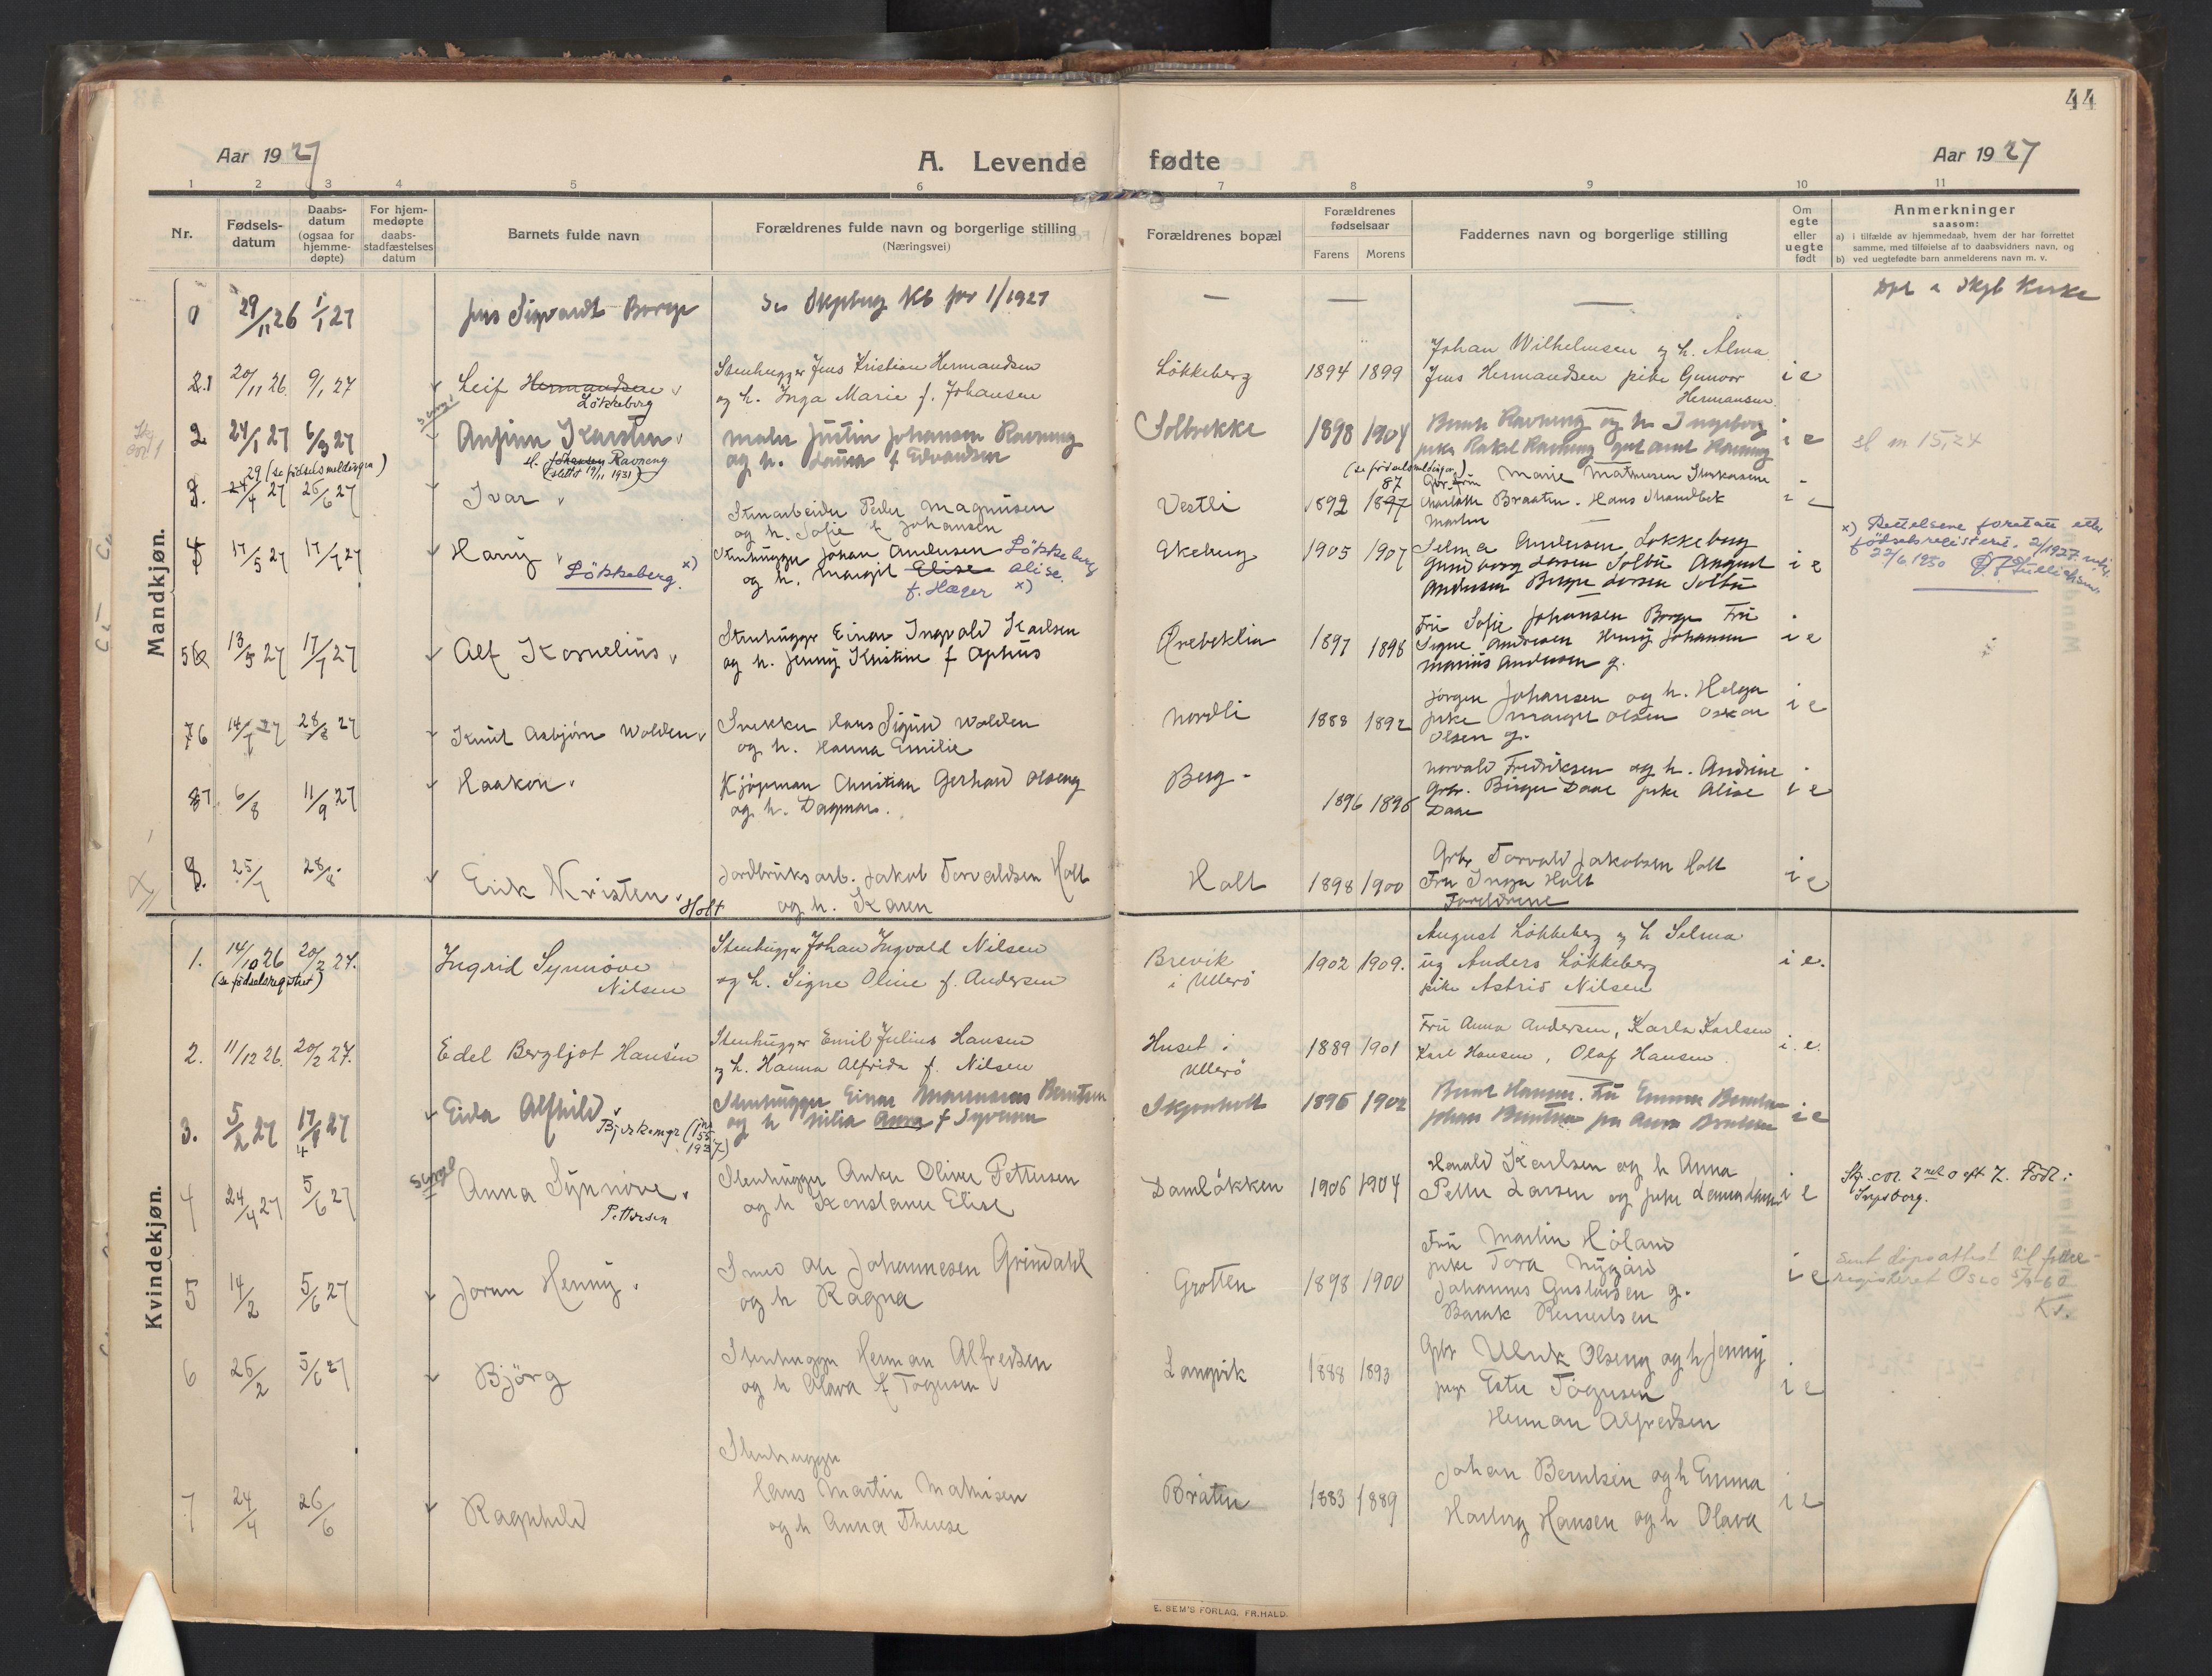 44
Aar 1927
A. Levende fødte
Aar 1927
1 2 3 4 5 6 7 8 9 10 11
Nr.
Fødsels-
datum
Daabs-
datum
(ogsaa for
hjemme-
døpte)
For hjem-
medøpte
daabs-
stadfæstelses
datum
Barnets fulde navn
Forældrenes fulde navn og borgerlige stilling
(Næringsvei)
Forældrenes bopæl
Forældrenes
fødselsaar
Farens Morens
Faddernes navn og borgerlige stilling
Om
egte
eller
uegte
født
Anmerkninger
saasom:
a) i tilfælde av hjemmedaab, hvem der har forrettet
samme, med tilføielse af to daabsvidners navn, og
b) ved uegtefødte barn anmelderens navn m. v.
Mandkjøn.
0 29/11 26 1/1 27 Jens Sigvardt Borge 1/1927 — — —
Kirke
Johan Wilhelmsen og h. Alma
2.1 20/11 26. 9/1 27 Leif Hermandsen Stenhugger Jens Kristian Hermandsen Løkkeberg 1894 1899 Jens Hermandsen pike Gunvor i e
Løkkeberg og h. Inga Marie f. Johansen Hermansen
2 24/1 27 6/3 27 Anfinn Karsten Maler Justin Johansen Ravneng Solbrekke 1898 1904 Bernt Ravneng og h Ingeborg i e
sl. Johansen Ravneng og h. f Edvardsen pike Rakel Ravneng
(slettet 19/11 1931)
29 (se fødselsmeldingen) (se fødselsmeldingen)
3. 24/4 27 26/6 27 Ivar Stenarbeider Peder Magnusen Vestli 1892 1897 87 Marie Mathisen
og h. Sofie f Johansen Charlotte Braaten. Hans Strandbek i e
17/5 27 17/7 27 Harry Stenhugger Johan Andersen Løkkeberg Ekeberg 1905 1907 Selma Andersen Løkkeberg i e
Løkkeberg. x) og h. Margit Elise Alise. Gunborg Larsen Solbu August
f. Hæger x) Andersen Birger Larsen Solbu
x) Rettelsene foretatt etter
fødselsregisteret. 2/1927
22/6 1950
Fru Sofie Johansen Borge Fru
56 13/5 27 17/7 27 Alf Kornelius Stenhugger Einar Ingvald Karlsen Ørebeklia 1897 1898 Signe Andresen Henry Johansen i e
og h. Jenny Kristine f Ophus Marius Andersen g.
76 14/7 27 28/8 27 Knut Asbjørn Wolden Snekker Hans Sigurd Wolden Nordli 1888 1892 Jørgen Johansen og h. Helga i e
og h. Hanna Emilie pike Margit Olsen Oskar
Olsen g.
87 6/8 11/9 27 Haakon Kjøpman Christian Gerhard Olseng Berg 1896 1896 Norvald Fredriksen og h. Andrine i e
og h. Dagmar. Grbr. Birger Daae pike Alise
Daae
8. 25/7 28/8 Erik Kristen Holt Jordbruksarb. Jakob Torvaldsen Holt Holt 1898 1900 Grbr Torvald Jakobsen Holt i e
og h. Karen Fru Inga Holt
Foreldrene
Kvindekjøn.
1. 14/10 26 20/2 27. Ingrid Synnøve Stenhugger Johan Ingvald Nilsen Brevik 1902 1909. August Løkkeberg og h Selma i e.
(se fødselsregistret) Nilsen og h. Signe Oline f. Andersen i Ullerø ug Anders Løkkeberg
pike Astrid Nilsen
2. 11/12 26. 20/2 27. Edel Bergljot Hansen Stenhugger Emil Julius Hansen Huset i 1889 1901 Fru Anna Andersen, Karla Karlsen i e.
og h. Hanna Alfrida f. Nilsen Ullerø Karl Hansen, Olaf Hansen
3. 5/2 27 17/4 27 Eida Alfhild Stenhugger Einar Berntsen 1896 1902 Bernt Hansen. Fru Emma Berntsen i e
og h Milia Anna f Syversen Johan Berntsen
4 24/4 27 5/6 27 Anna Synnøve Stenhugger Anker Oliver Pettersen Damløkken 1906 1904 Harald Karlsen og h Anna i e
Pettersen og h Konstance Elise Petter Larsen og pike
5 14/2 5/6 27 Jorun Henny. Smed Ole Johannesen Grindahl Grotten 1898 1900 Fru Martin Høland i e
og h Ragna pike Tora Nygård
Johannes Gustavsen g.
Sent dåpsattest til folke-
registeret Oslo
6 26/2 5/6 27 Bjørg Stenhugger Herman Alfredsen Langvik 1888 1893 Grbr Ulrik Olseng og h Jenny i e
og h Olava f Torgusen Ester Torgusen
Herman Alfredsen
7 24/4 26/6 Ragnhild Stenhugger
Hans Martin Mathisen Bråten 1883 1889 Johan Berntsen og h Emma i e
og h Anna Therese Hansen og h Olava
E. SEM'S FORLAG, FR.HALD.